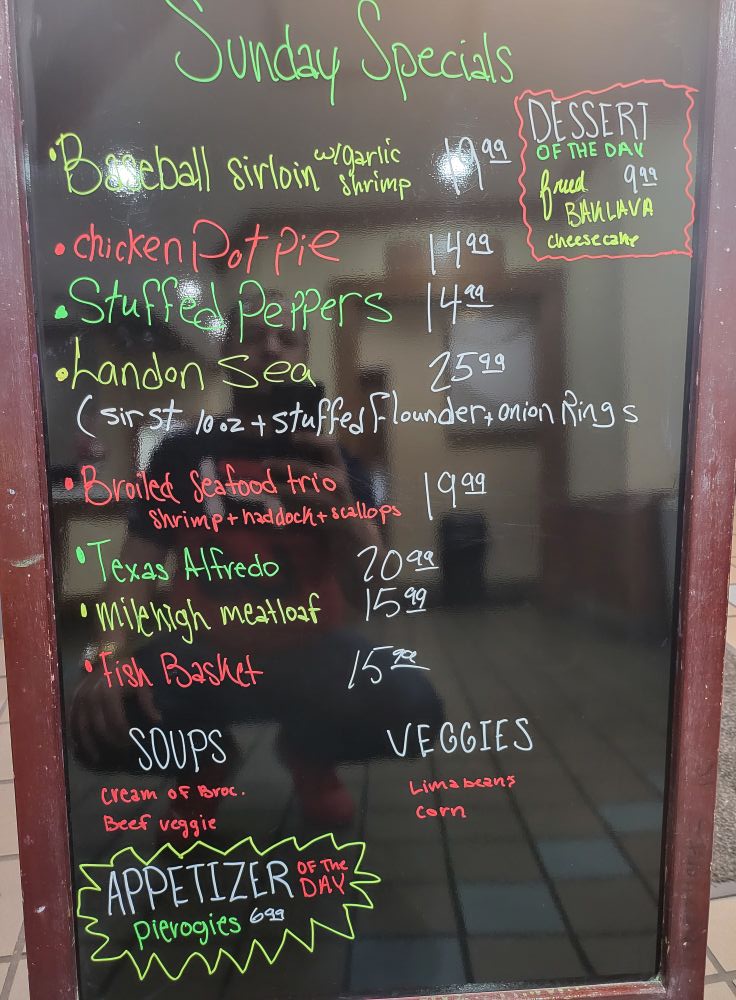 Sunday Specials
• Baseball sirloin w/garlic shrimp 19 99
• chicken Pot pie 14 99
• Stuffed Peppers 14 99
• Landon Sea 25 99
( sir st 10 oz + stuffed flounder + onion Rings
• Broiled seafood trio 19 99
shrimp + haddock + scallops
• Texas Alfredo 20 99
• milehigh meatloaf 15 99
• Fish Basket 15 99
DESSERT
OF THE DAY
fried 9 99
BAKLAVA
cheesecake
SOUPS
cream of Broc.
Beef veggie
VEGGIES
Lima beans
corn
APPETIZER OF THE DAY
pierogies 6 99